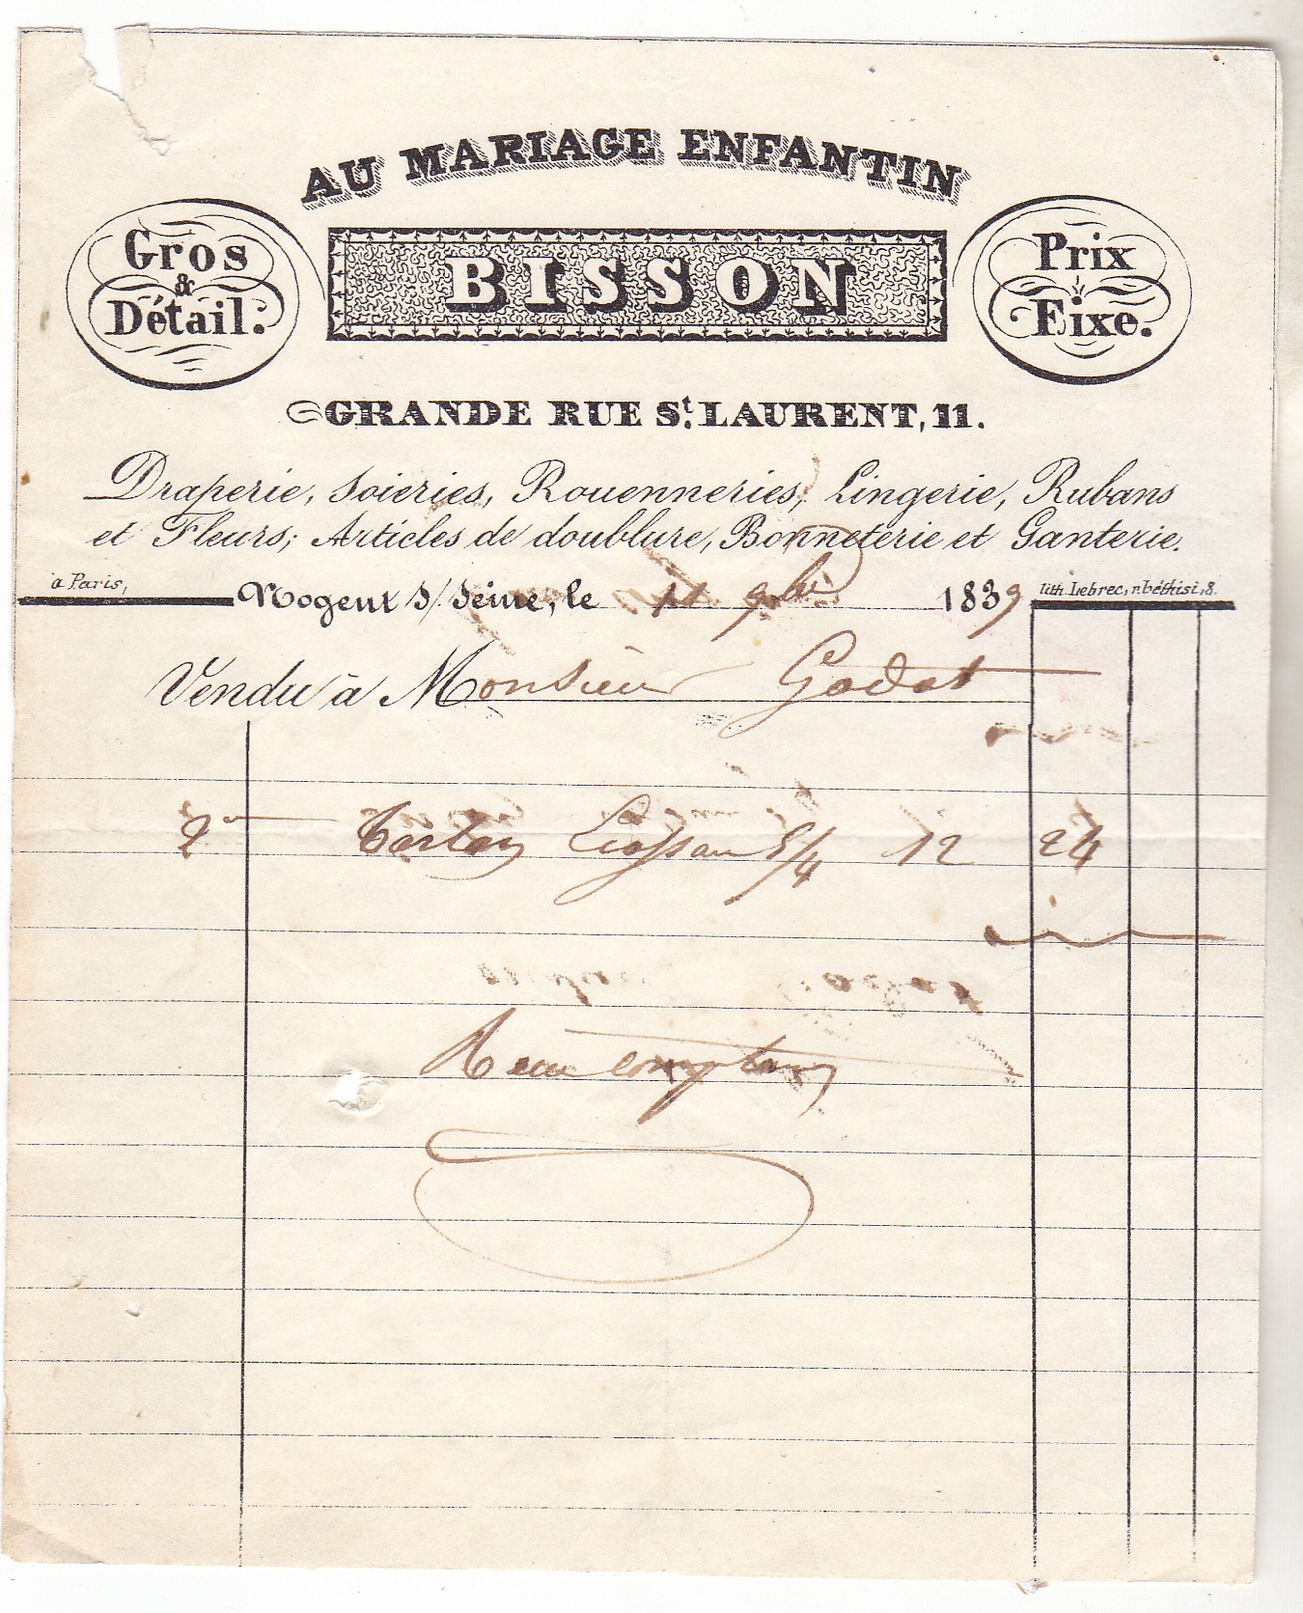 AU MARIAGE ENFANTIN
Gros & Détail.
BISSON
Prix Fixe.
GRANDE RUE St. LAURENT, 11.
Draperie, Soieries, Rouenneries, Lingerie, Rubans
et Fleurs; Articles de doublure, Bonneterie et Ganterie.
à Paris,
lith. Lebrec, r. béthisi, 8.
Nogent S/ Seine, le 11 9bre 1839
Vendu à Monsieur Godot
2m Tartan 5/4 12 24